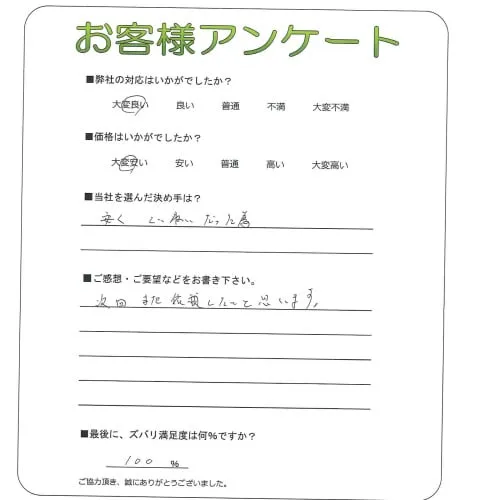 お客様アンケート
■弊社の対応はいかがでしたか？
大変良い 良い 普通 不満 大変不満
■価格はいかがでしたか？
大変安い 安い 普通 高い 大変高い
■当社を選んだ決め手は？
安く だった為
■ご感想・ご要望などをお書き下さい。
次回また依頼したいと思います。
■最後に、ズバリ満足度は何%ですか？
100 %
ご協力頂き、誠にありがとうございました。